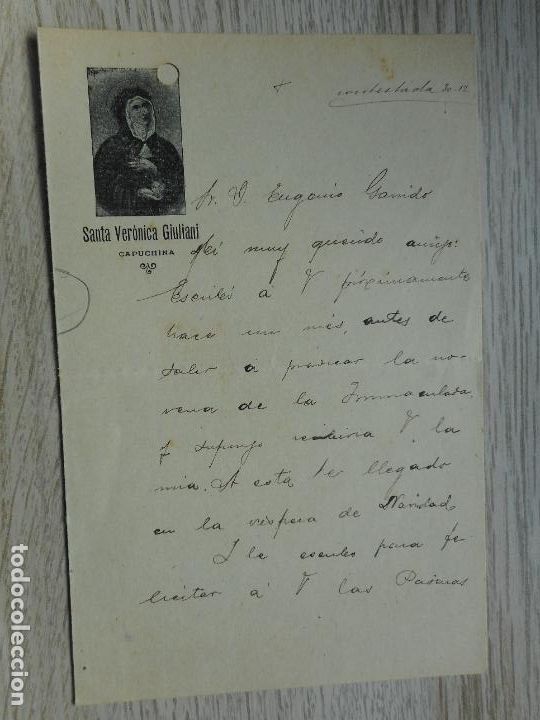 +
contestada 30-12
Sr. D. Eugenio Garrido
Santa Verónica Giuliani
CAPUCHINA
Mi muy querido amigo:
Escribí á V próximamente
hace un mes, antes de
salir á predicar la no-
vena de la Inmaculada,
y supongo recibiria V la
mia. A esta he llegado
en la víspera de Navidad
I le escribo para fe-
licitar á V las Pascuas
todocoleccion.net